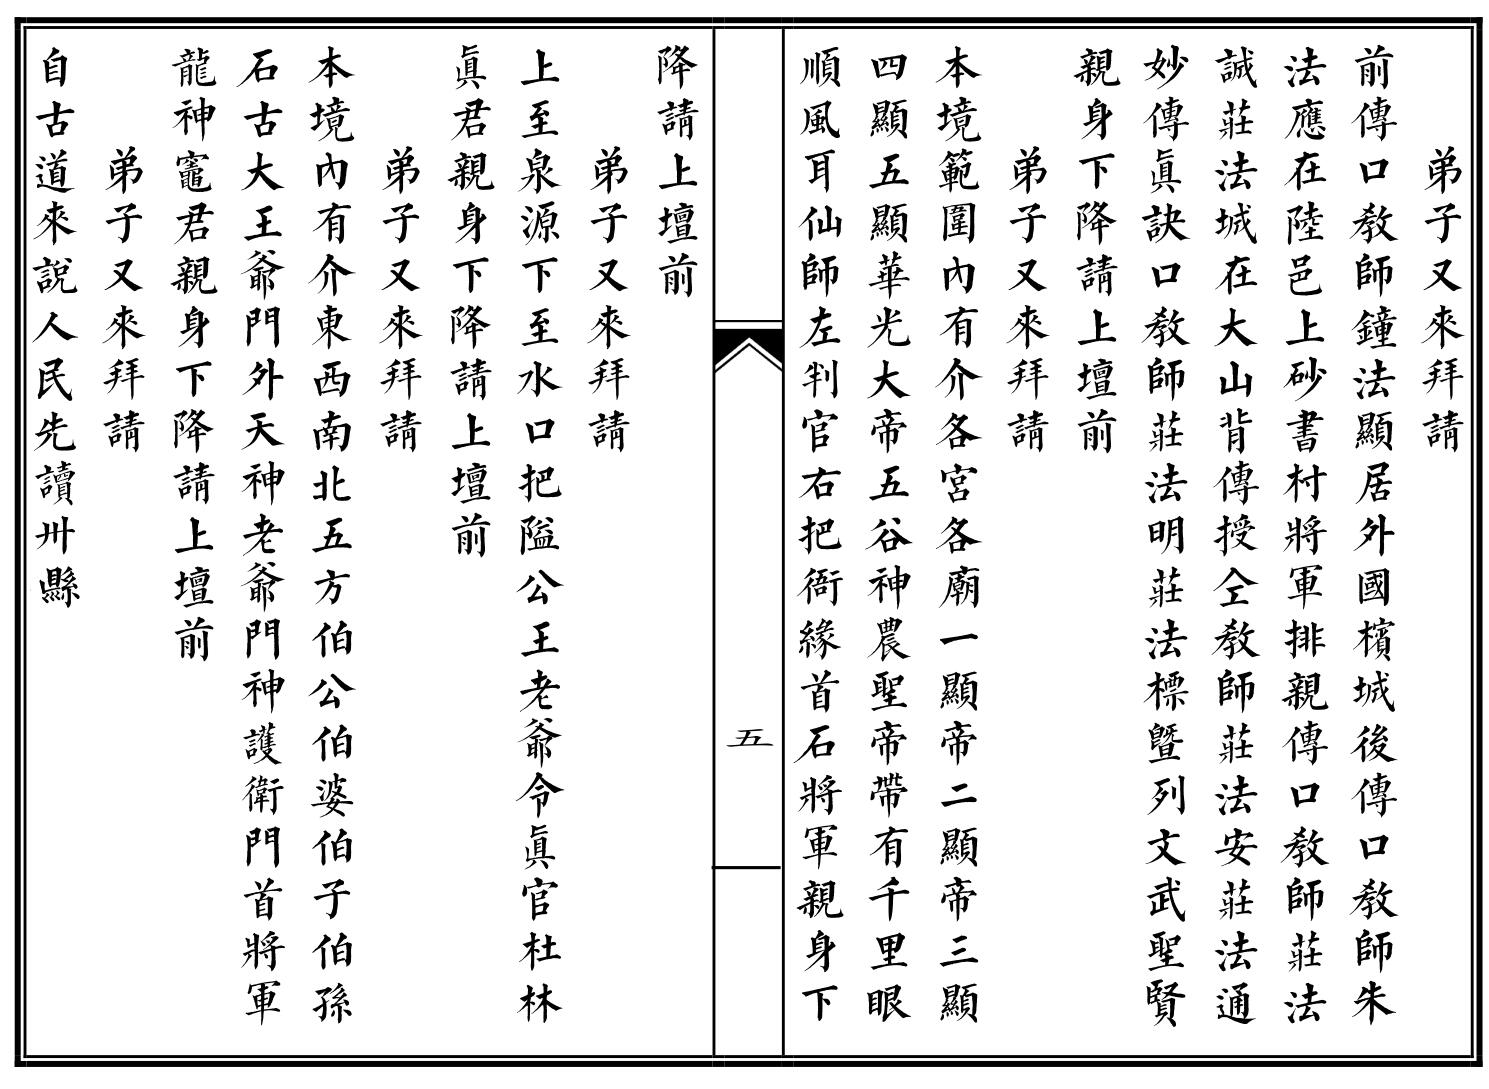 弟子又來拜請
前傳口教師鐘法顯居外國檳城後傳口教師朱
法應在陸邑上砂書村將軍排親傳口教師莊法
誠莊法城在大山背傳授仝教師莊法安莊法通
妙傳眞訣口教師莊法明莊法標曁列文武聖賢
親身下降請上壇前
弟子又來拜請
本境範圍內有介各宮各廟一顯帝二顯帝三顯
四顯五顯華光大帝五谷神農聖帝帶有千里眼
順風耳仙師左判官右把衙緣首石將軍親身下
五
降請上壇前
弟子又來拜請
上至泉源下至水口把隘公王老爺令眞官杜林
眞君親身下降請上壇前
弟子又來拜請
本境內有介東西南北五方伯公伯婆伯子伯孫
石古大王爺門外天神老爺門神護衛門首將軍
龍神竈君親身下降請上壇前
弟子又來拜請
自古道來說人民先讀卅縣